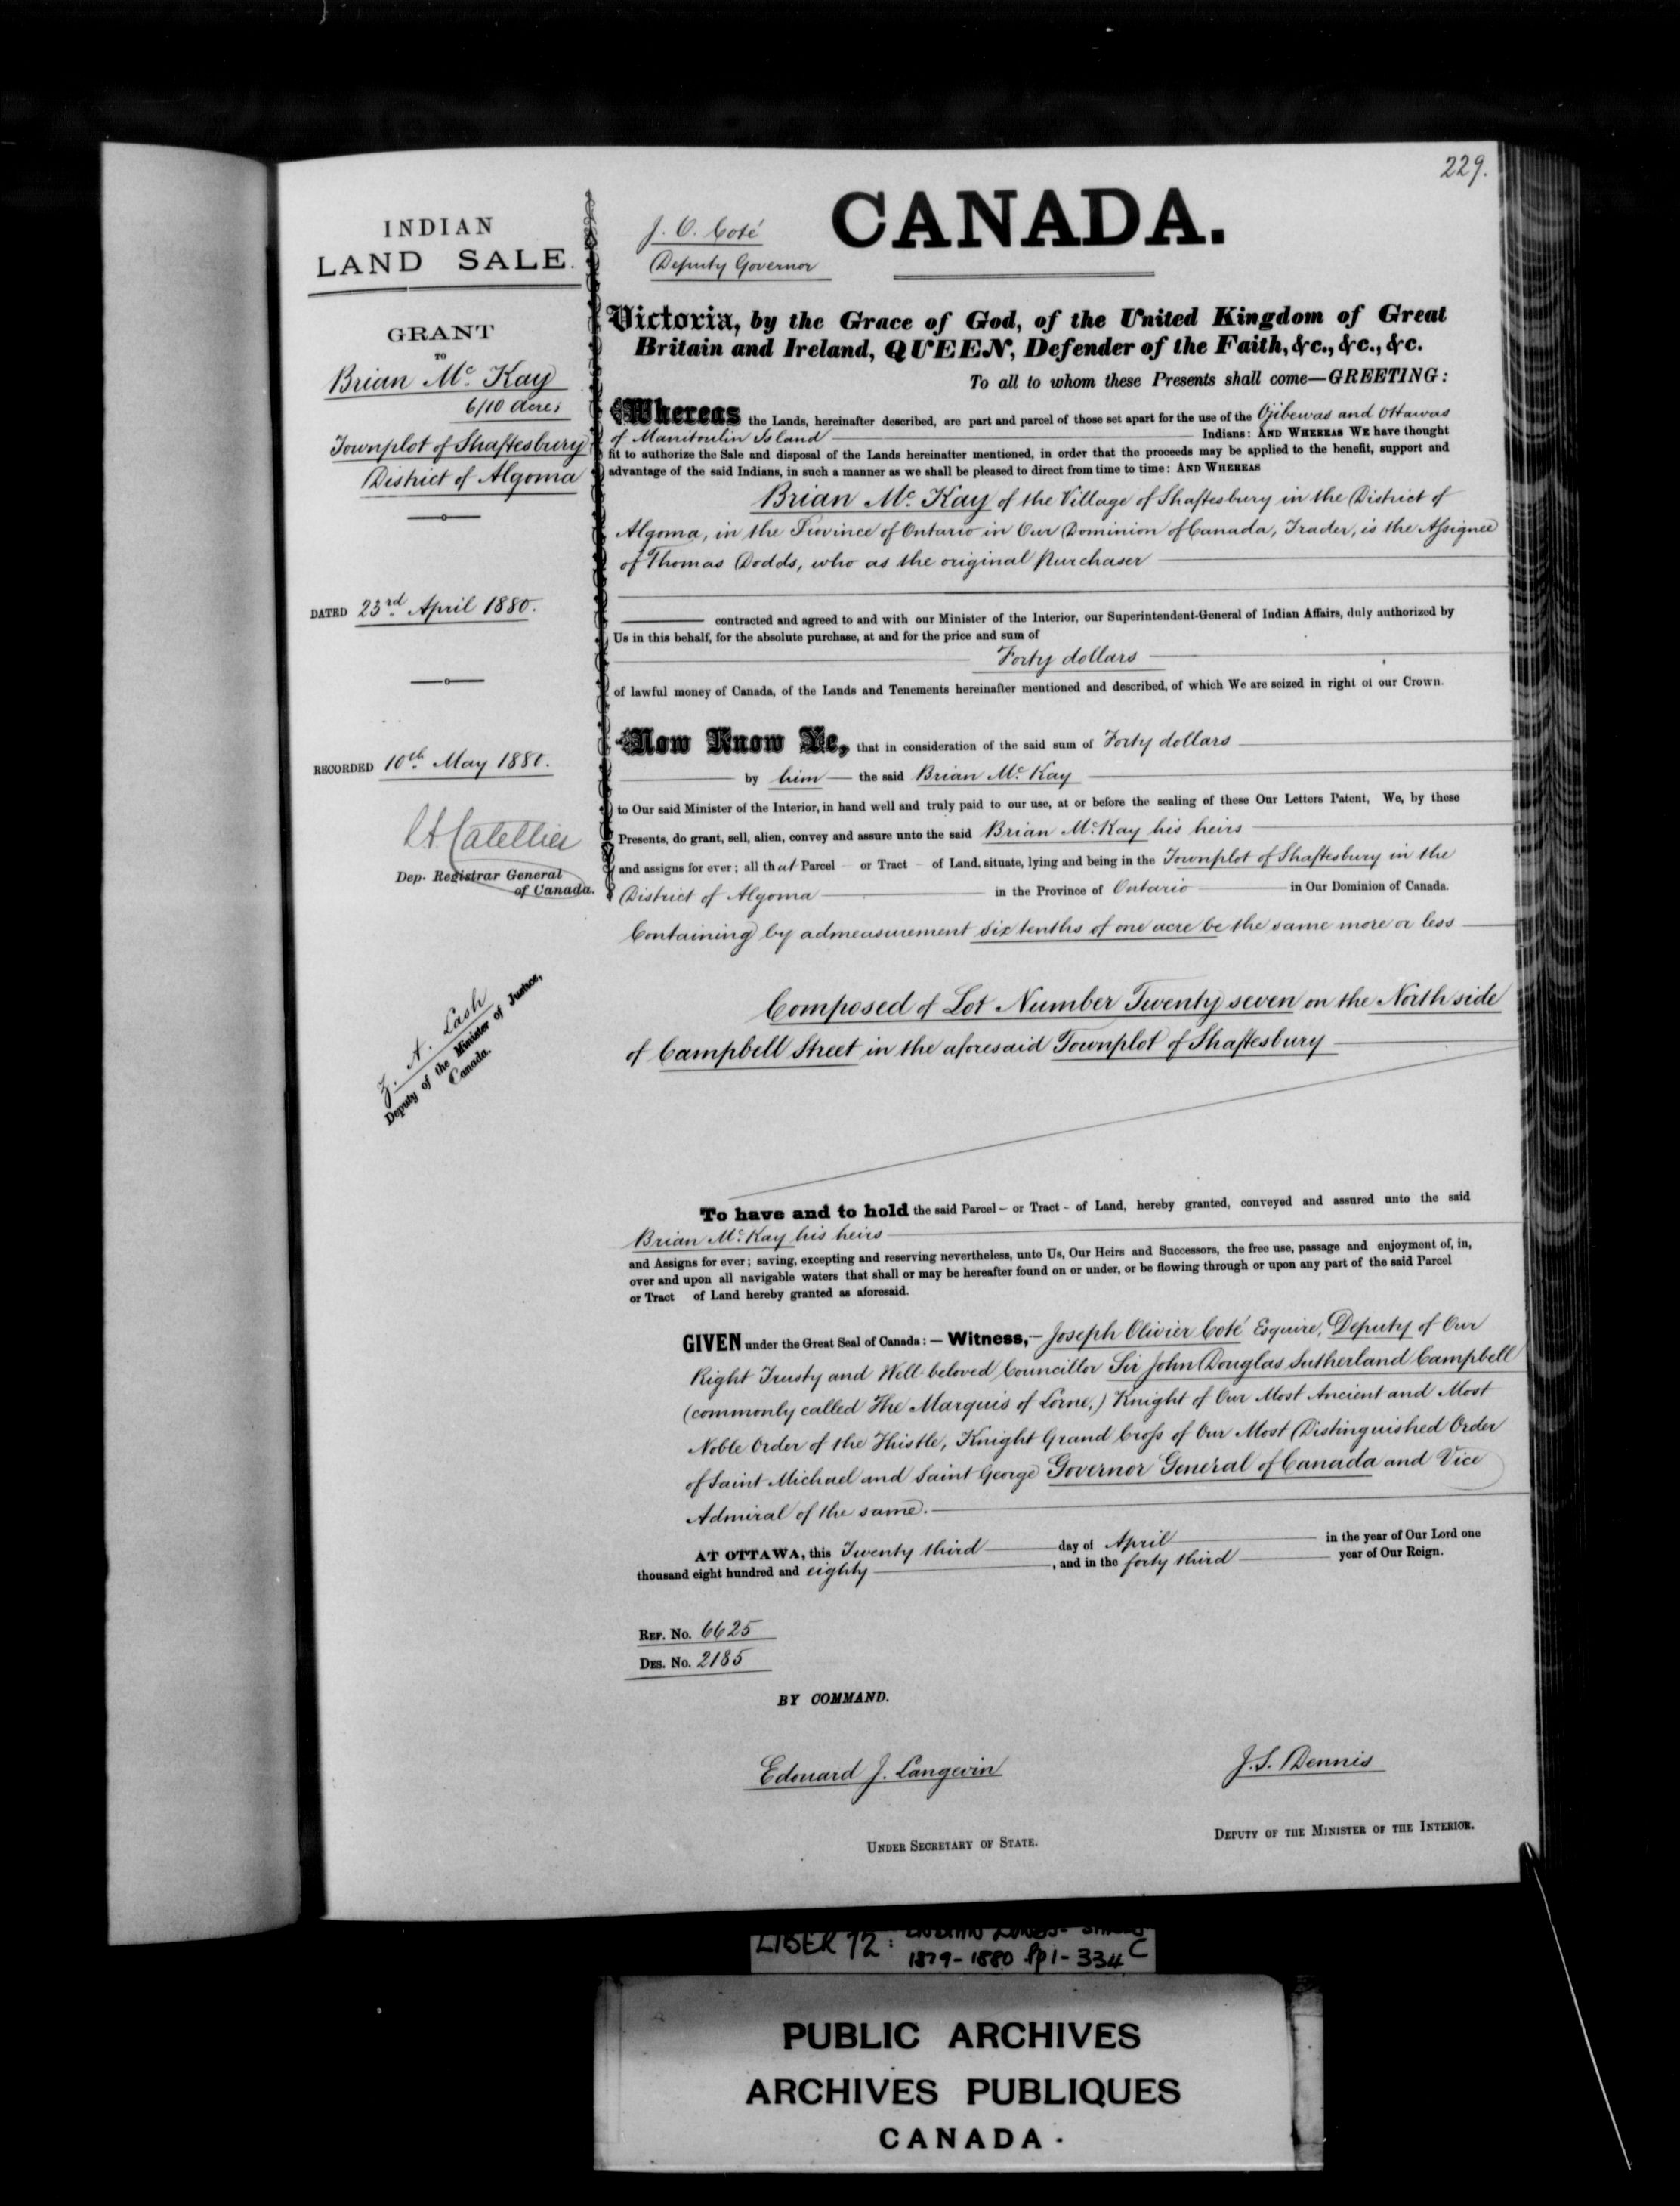 229.
INDIAN
LAND SALE.
GRANT
TO
Brian Mc. Kay
6/10 Acres
Townplot of Shaftesbury
District of Algoma
DATED 23rd April 1880.
RECORDED 10th May 1880.
Dep. Registrar General
of Canada.
Z. A. Lash
Deputy of the Minister of Justice,
Canada.
J. O. Coté
Deputy Governor
CANADA.
Victoria, by the Grace of God, of the United Kingdom of Great
Britain and Ireland, QUEEN, Defender of the Faith, &c., &c., &c.
To all to whom these Presents shall come—GREETING:
Whereas the Lands, hereinafter described, are part and parcel of those set apart for the use of the Ojibewas and Ottawas
of Manitoulin Island Indians: AND WHEREAS WE have thought
fit to authorize the Sale and disposal of the Lands hereinafter mentioned, in order that the proceeds may be applied to the benefit, support and
advantage of the said Indians, in such a manner as we shall be pleased to direct from time to time: AND WHEREAS
Brian Mc. Kay of the Village of Shaftesbury in the District of
Algoma, in the Province of Ontario in Our Dominion of Canada, Trader, is the Assignee
of Thomas Dodds, who as the original Purchaser
contracted and agreed to and with our Minister of the Interior, our Superintendent-General of Indian Affairs, duly authorized by
Us in this behalf, for the absolute purchase, at and for the price and sum of
Forty dollars
of lawful money of Canada, of the Lands and Tenements hereinafter mentioned and described, of which We are seized in right of our Crown.
Now Know Ye, that in consideration of the said sum of Forty dollars
by him the said Brian Mc. Kay
to Our said Minister of the Interior, in hand well and truly paid to our use, at or before the sealing of these Our Letters Patent, We, by these
Presents, do grant, sell, alien, convey and assure unto the said Brian Mc. Kay his heirs
and assigns for ever; all that Parcel or Tract of Land, situate, lying and being in the Townplot of Shaftesbury in the
District of Algoma in the Province of Ontario in Our Dominion of Canada.
Containing by admeasurement six tenths of one acre be the same more or less
Composed of Lot Number Twenty seven on the North side
of Campbell Street in the aforesaid Townplot of Shaftesbury
To have and to hold the said Parcel or Tract of Land, hereby granted, conveyed and assured unto the said
Brian Mc. Kay his heirs
and Assigns for ever; saving, excepting and reserving nevertheless, unto Us, Our Heirs and Successors, the free use, passage and enjoyment of, in,
over and upon all navigable waters that shall or may be hereafter found on or under, or be flowing through or upon any part of the said Parcel
or Tract of Land hereby granted as aforesaid.
GIVEN under the Great Seal of Canada:—Witness,—Joseph Olivier Coté Esquire, Deputy of Our
Right Trusty and Well-beloved Councillor Sir John Douglas Sutherland Campbell
(commonly called The Marquis of Lorne,) Knight of Our Most Ancient and Most
Noble Order of the Thistle, Knight Grand Cross of Our Most Distinguished Order
of Saint Michael and Saint George Governor General of Canada and Vice
Admiral of the same.
AT OTTAWA, this Twenty third day of April in the year of Our Lord one
thousand eight hundred and eighty, and in the forty third year of Our Reign.
REF. No. 6625
DES. No. 2185
BY COMMAND.
Edouard J. Langevin
J. S. Dennis
UNDER SECRETARY OF STATE.
DEPUTY OF THE MINISTER OF THE INTERIOR.
LIBER 72:
1879-1880 Pp 1-334 C
PUBLIC ARCHIVES
ARCHIVES PUBLIQUES
CANADA